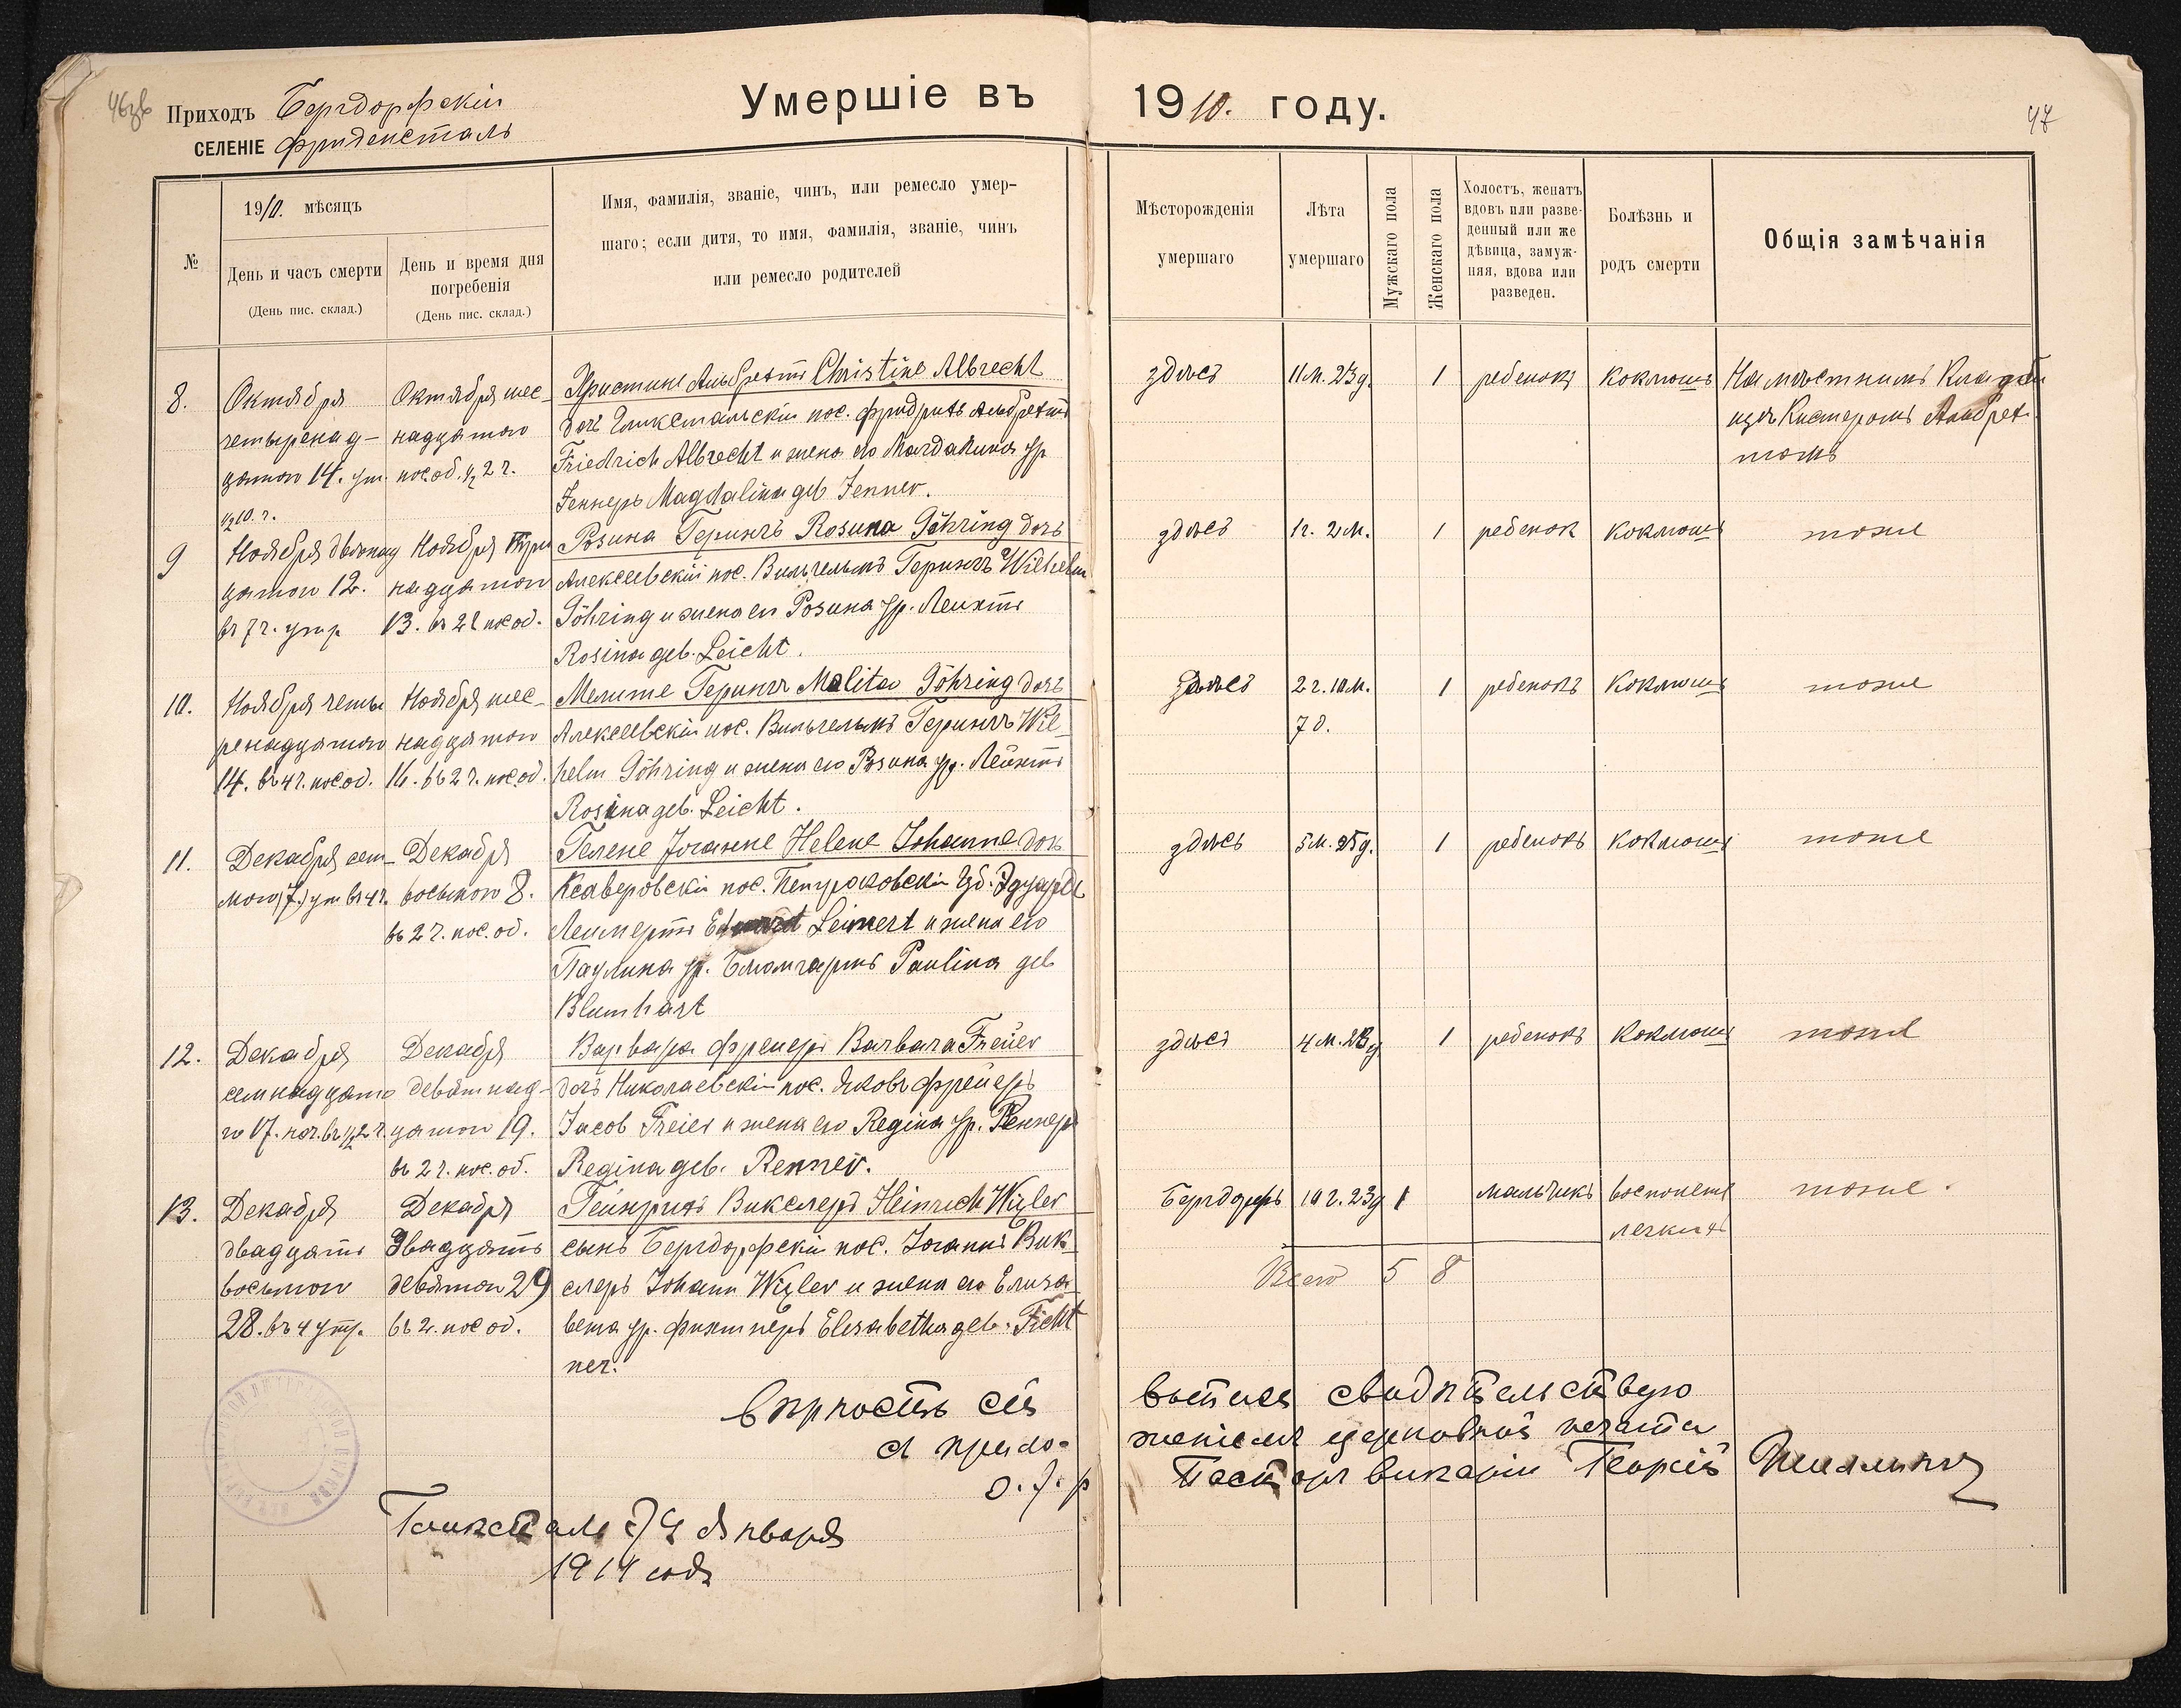 46об
Приходъ Бергдорфскій
СЕЛЕНІЕ Фриденсталь
Умершіе въ 1910. году.
47
№
1910. мѣсяцъ
День и часъ смерти
(День пис. склад.)
День и время дня
погребенія
(День пис. склад.)
Имя, фамилія, званіе, чинъ, или ремесло умер-
шаго; если дитя, то имя, фамилія, званіе, чинъ
или ремесло родителей
Мѣсторожденія
умершаго
Лѣта
умершаго
Мужскаго пола
Женскаго пола
Холостъ, женатъ
вдовъ или разве-
денный или же
дѣвица, замуж-
няя, вдова или
разведен.
Болѣзнь и
родъ смерти
Общія замѣчанія
8.
Октября
четыренад-
цатого 14. ут.
½10. ч.
Октября шес-
надцатого
пос об. ½ 2 ч.
Христине Альбрехтъ Christine Albrecht
дочь Глюкстальскій пос. Фридрихъ Альбрехтъ
Friedrich Albrecht и жена его Магдалина ур
Геннеръ Magdalina geb Jenner.
здѣсь
11 м. 23 д.
1
ребенокъ
коклюшъ
На мѣстнимъ Кладби
щѣ Кистеромъ Альбрех-
томъ
9
Ноября двенад
цатого 12.
въ 7 ч. утр
Ноября Трі
надцатого
13. въ 2 ч пос од.
Розина Герингъ Rosina Göhring дочь
Алексеевскій пос. Вильгельмъ Герингъ Wilhelm
Göhring и жена его Розина ур. Лейхтъ
Rosina geb. Leicht.
здѣсь
1 г. 2 м.
1
ребенок
коклюшъ
тоже
10.
Ноября четы
ренадцатого
14. въ 4 ч. пос од.
Ноября шес-
надцатого
16. въ 2 ч. пос од.
Мелите Герингъ Malita Göhring дочь
Алексеевскій пос. Вильгельмъ Герингъ Wil-
helm Göhring и жена его Розина ур. Лейхтъ
Rosina geb. Leicht.
здѣсь
2 г. 10 м.
7 д.
1
ребенокъ
коклюшъ
тоже
11.
Декабря сем-
мого (7.) ут въ 4 ч.
Декабря
восьмого 8.
въ 2 ч. пос. од.
Гелене Іоганне Helene Johanne дочь
Ксаверовскій пос. Петроковскій Губ. Эдуардъ
Леимертъ Eduard Leimert и жена его
Паулина ур. Блюмгартъ Paulina geb
Blumhart
здѣсь
5 м. 25 д.
1
ребенокъ
коклюшъ
тоже
12.
Декабря
семнадцато
го 17. ноч. въ ½2 ч.
Декабря
девятнад-
цатого 19.
въ 2 ч. пос. об.
Варвара Фрейеръ Barbara Freier
дочь Николаевскій пос. Яковъ Фрейеръ
Jacob Freier и жена его Regina ур. Реннеръ
Regina geb. Renner.
здѣсь
4 м. 28 д
1
ребенокъ
коклюшъ
тоже
13.
Декабря
двадцать
восьмого
28. въ 4 утр.
Декабря
Двадцать
девятого 29
въ 2. пос од.
Гейнрихъ Викслеръ Heinrich Wixler
сынъ Бергдорфскій пос. Іоганнъ Вик-
слеръ Johann Wixler и жена его Елиза-
вета ур. Фихтнеръ Elisabetha geb. Ficht
ner.
Бергдорфъ
10 г. 23 д
1
мальчикъ
восполеніе
легкихъ
тоже.
Всего 5 8
Вѣрность сей выписи свидѣтельствую
съ прило- женіемъ церковной печати
Пасторъ викарій Георгій
Глюксталь 24 Января
1911 года